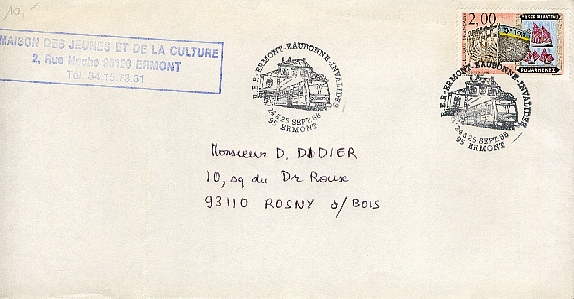 MAISON DES JEUNES ET DE LA CULTURE
2, Rue Hoche 95120 ERMONT
Tél. 34.15.73.31
R.E.R-ERMONT-EAUBONNE-INVALIDES
24 & 25 SEPT. 88
95 ERMONT
2,00
DOUARNENEZ
R.E.R-ERMONT-EAUBONNE-INVALIDES
24 & 25 SEPT. 88
95 ERMONT
Monsieur D. DADIER
10, sq du Dr Roux
93110 ROSNY s/BOIS